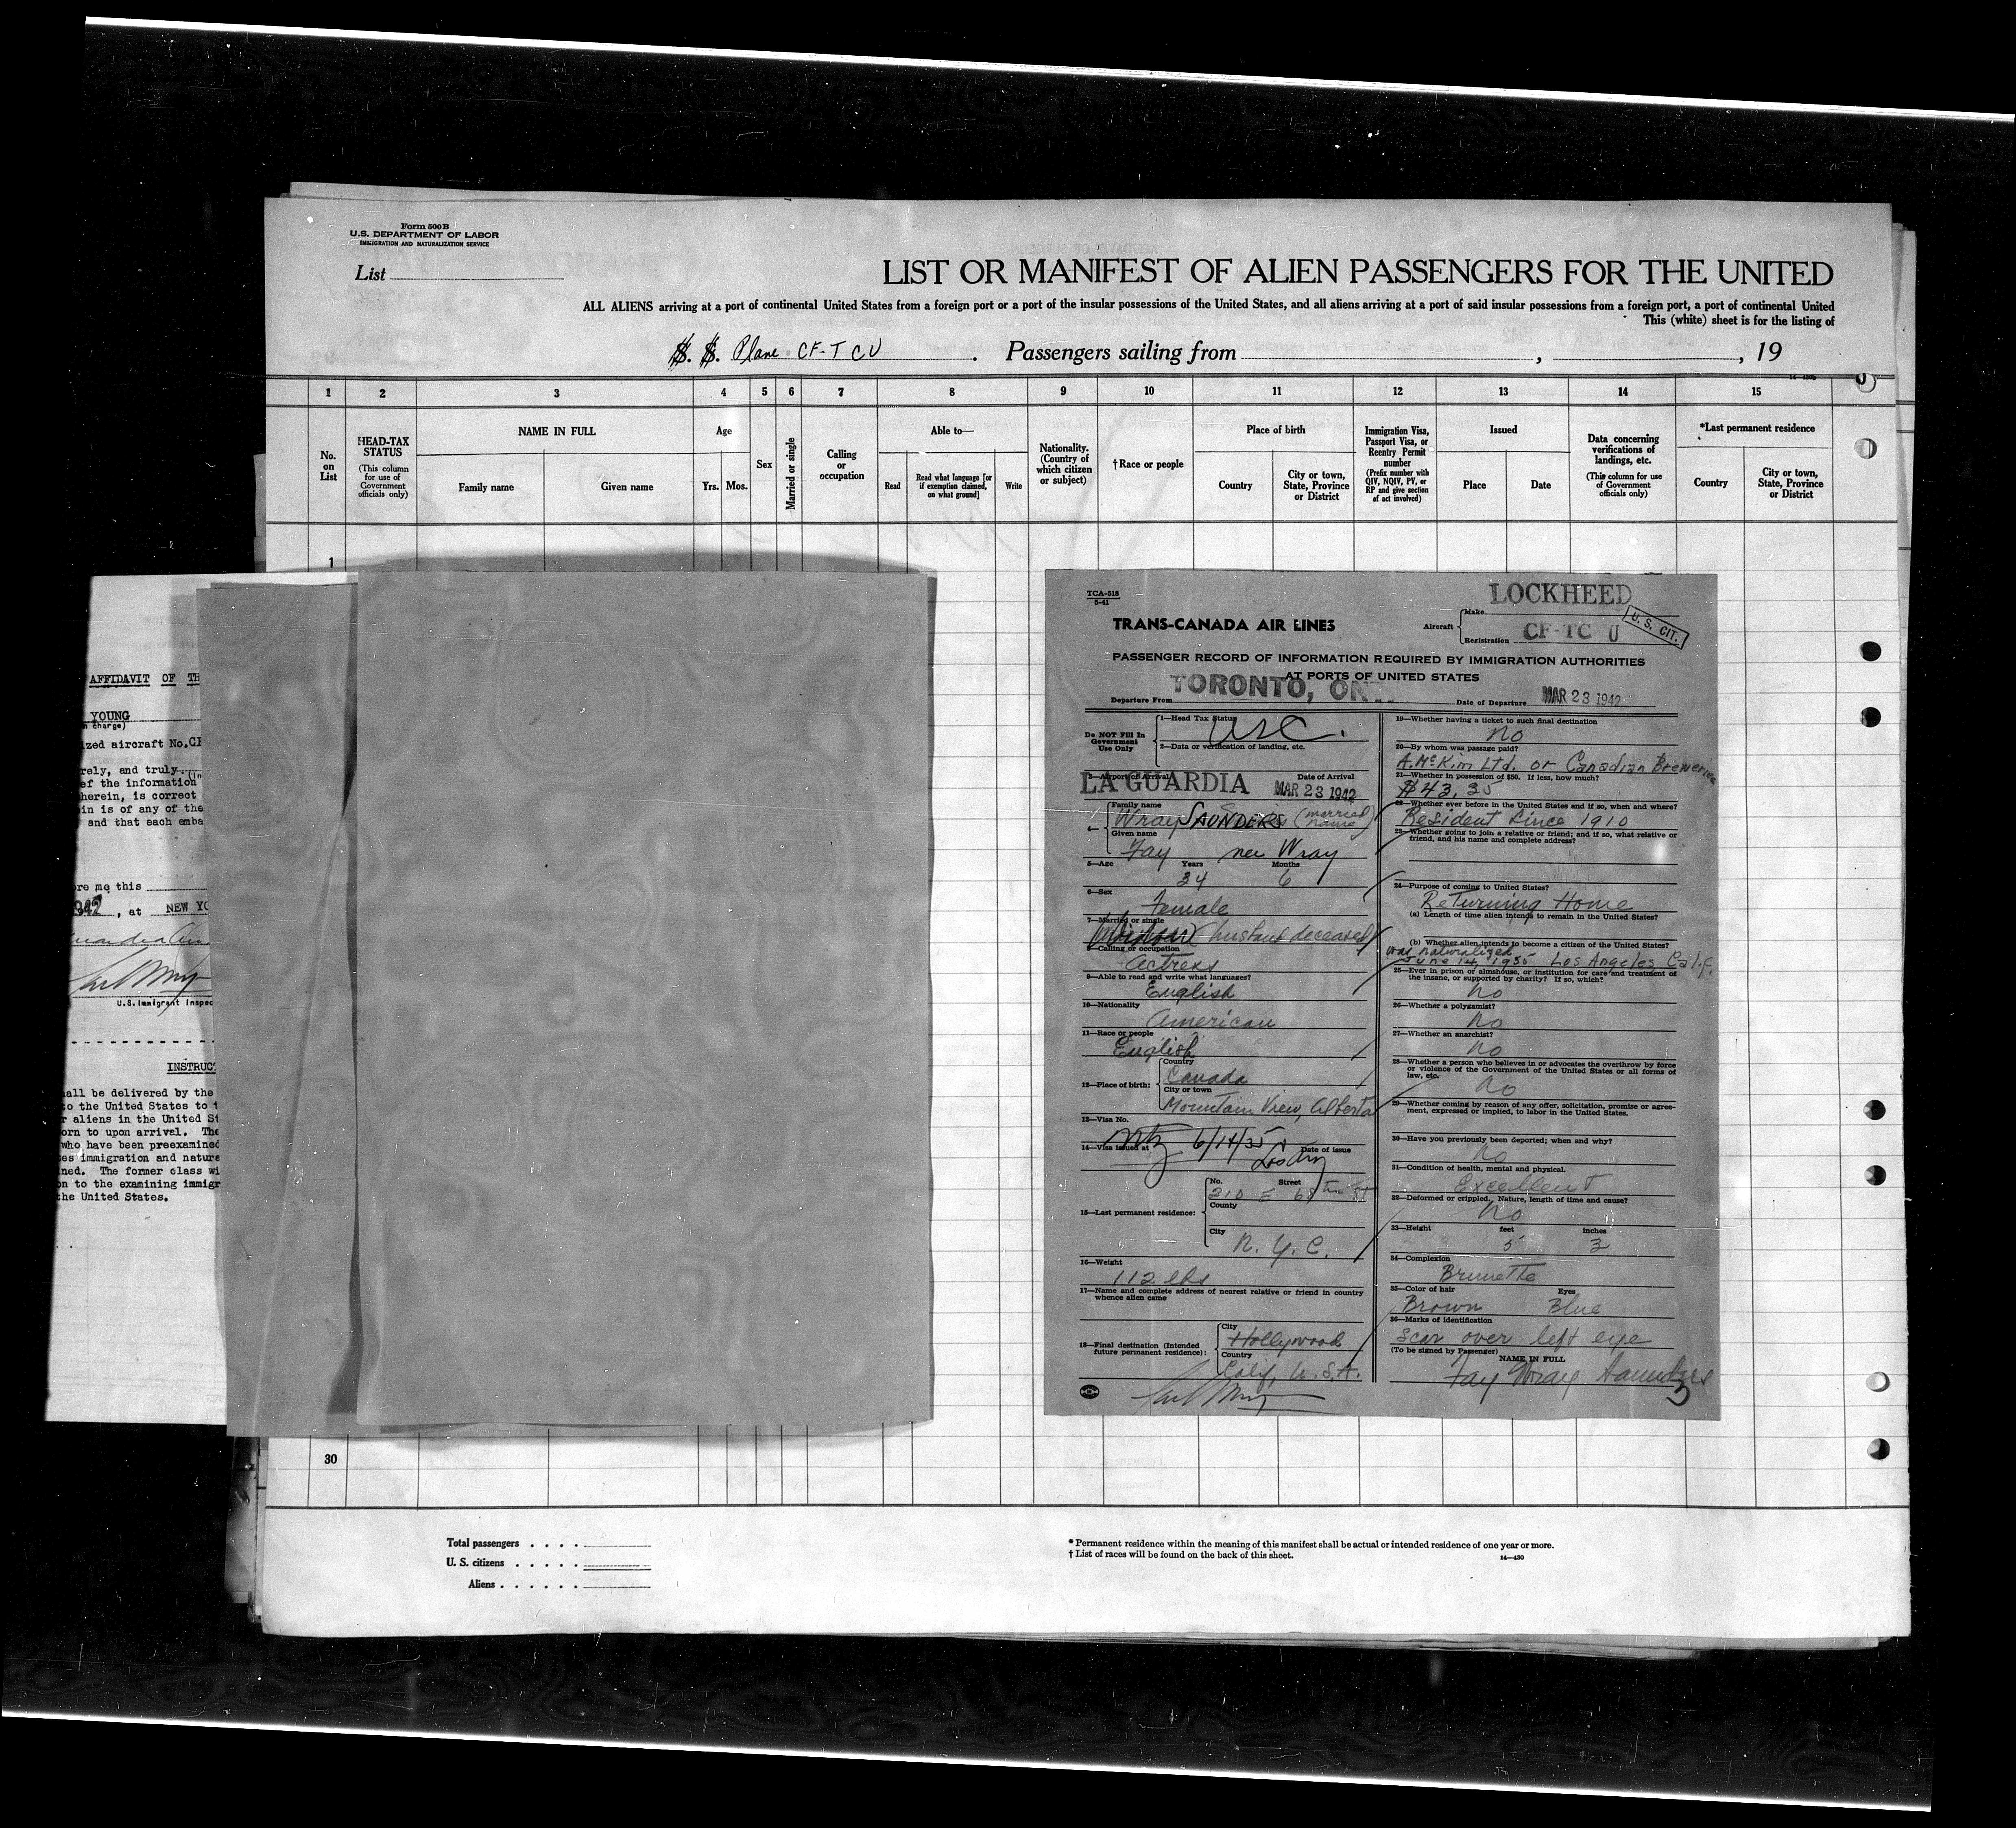 Form 500B
U.S. DEPARTMENT OF LABOR
IMMIGRATION AND NATURALIZATION SERVICE
List
LIST OR MANIFEST OF ALIEN PASSENGERS FOR THE UNITED
ALL ALIENS arriving at a port of continental United States from a foreign port or a port of the insular possessions of the United States, and all aliens arriving at a port of said insular possessions from a foreign port, a port of continental United
This (white) sheet is for the listing of
S. S. Plane CF-TCU . Passengers sailing from , , 19
1 2 3 4 5 6 7 8 9 10 11 12 13 14 15
No. on List
HEAD-TAX STATUS
(This column for use of Government officials only)
NAME IN FULL
Family name Given name
Age
Yrs. Mos.
Sex
Married or single
Calling or occupation
Able to—
Read
Read what language [or if exemption claimed, on what ground]
Write
Nationality. (Country of which citizen or subject)
†Race or people
Place of birth
Country
City or town, State, Province or District
Immigration Visa, Passport Visa, or Reentry Permit number
(Prefix number with QIV, NQIV, PV, or RP and give section of act involved)
Issued
Place Date
Data concerning verifications of landings, etc.
(This column for use of Government officials only)
*Last permanent residence
Country
City or town, State, Province or District
1
AFFIDAVIT OF TH
YOUNG
n charge)
ized aircraft No.
rely, and truly
ef the information
herein, is correct
in is of any of the
and that each emba
ore me this
942 , at NEW YO
U.S. Immigrant Inspec
INSTRUC
all be delivered by the
to the United States to
r aliens in the United St
orn to upon arrival. The
who have been preexamined
es immigration and nature
ned. The former class wi
on to the examining immigr
the United States.
TCA-518
5-41
TRANS-CANADA AIR LINES
Aircraft
Make LOCKHEED
Registration CF-TC U
U. S. CIT.
PASSENGER RECORD OF INFORMATION REQUIRED BY IMMIGRATION AUTHORITIES
AT PORTS OF UNITED STATES
Departure From TORONTO, ON Date of Departure MAR 23 1942
Do NOT Fill In Government Use Only
1—Head Tax Status USC.
2—Data or verification of landing, etc.
3—Airport of Arrival LA GUARDIA Date of Arrival MAR 23 1942
4—
Family name
Wray SAUNDERS (married name)
Given name
Fay nee Wray
5—Age Years Months
34 6
6—Sex
Female
7—Married or single
Widow husband deceased
8—Calling or occupation
Actress
9—Able to read and write what languages?
English
10—Nationality
American
11—Race or people
English
12—Place of birth:
Country
Canada
City or town
Mountain View, Alberta
13—Visa No.
Ntz 6/14/35
14—Visa issued at Date of issue
15—Last permanent residence:
No. Street
210 E 68th St
County
City
N. Y. C.
16—Weight
112 lbs
17—Name and complete address of nearest relative or friend in country whence alien came
18—Final destination (Intended future permanent residence):
City
Hollywood
Country
Calif, U.S.A.
19—Whether having a ticket to such final destination
No
20—By whom was passage paid?
A. McKim Ltd. or Canadian Breweries
21—Whether in possession of $50. If less, how much?
$43.35
22—Whether ever before in the United States and if so, when and where?
Resident Since 1910
23—Whether going to join a relative or friend; and if so, what relative or friend, and his name and complete address?
24—Purpose of coming to United States?
Returning Home
(a) Length of time alien intends to remain in the United States?
(b) Whether alien intends to become a citizen of the United States?
was naturalized
June 14, 1935 Los Angeles Calif.
25—Ever in prison or almshouse, or institution for care and treatment of the insane, or supported by charity? If so, which?
no
26—Whether a polygamist?
no
27—Whether an anarchist?
no
28—Whether a person who believes in or advocates the overthrow by force or violence of the Government of the United States or all forms of law, etc.
no
29—Whether coming by reason of any offer, solicitation, promise or agreement, expressed or implied, to labor in the United States.
30—Have you previously been deported; when and why?
no
31—Condition of health, mental and physical.
Excellent
32—Deformed or crippled. Nature, length of time and cause?
no
33—Height feet inches
5 3
34—Complexion
Brunette
35—Color of hair Eyes
Brown Blue
36—Marks of identification
Scar over left eye
(To be signed by Passenger) NAME IN FULL
Fay Wray Saunders
3
30
Total passengers . . . .
U. S. citizens . . . . .
Aliens . . . . . .
* Permanent residence within the meaning of this manifest shall be actual or intended residence of one year or more.
† List of races will be found on the back of this sheet.
14—430